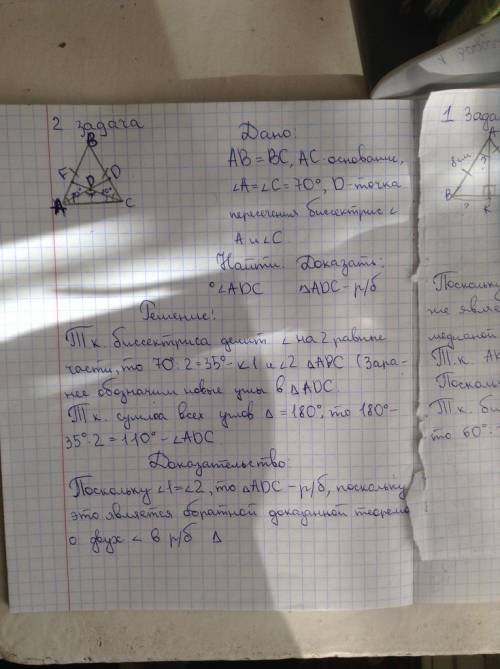 2 задача
B
F
D
D
A
C
Дано:
AB = BC, AC - основание,
∠A = ∠C = 70°, D - точка
пересечения биссектрис ∠
A и ∠C
Найти: Доказать:
°∠ADC ΔADC - р/б
Решение:
Т.к. биссектриса делит ∠ на 2 равные
части, то 70°:2 = 35° - ∠1 и ∠2 ΔADC (Зара-
нее обозначим новые углы в ΔADC
Т.к. сумма всех углов Δ = 180°, то 180° -
35°·2 = 110° - ∠ADC
Доказательство:
Поскольку ∠1 = ∠2, то ΔADC - р/б, поскольку
это является боратной доказанной теореме
о двух ∠ в р/б Δ
1 Зада
A
8см
B
?
K
Поскольку
же явля
медианой
Т.к. AK
Поскольк
Т.к. би
то 60°: